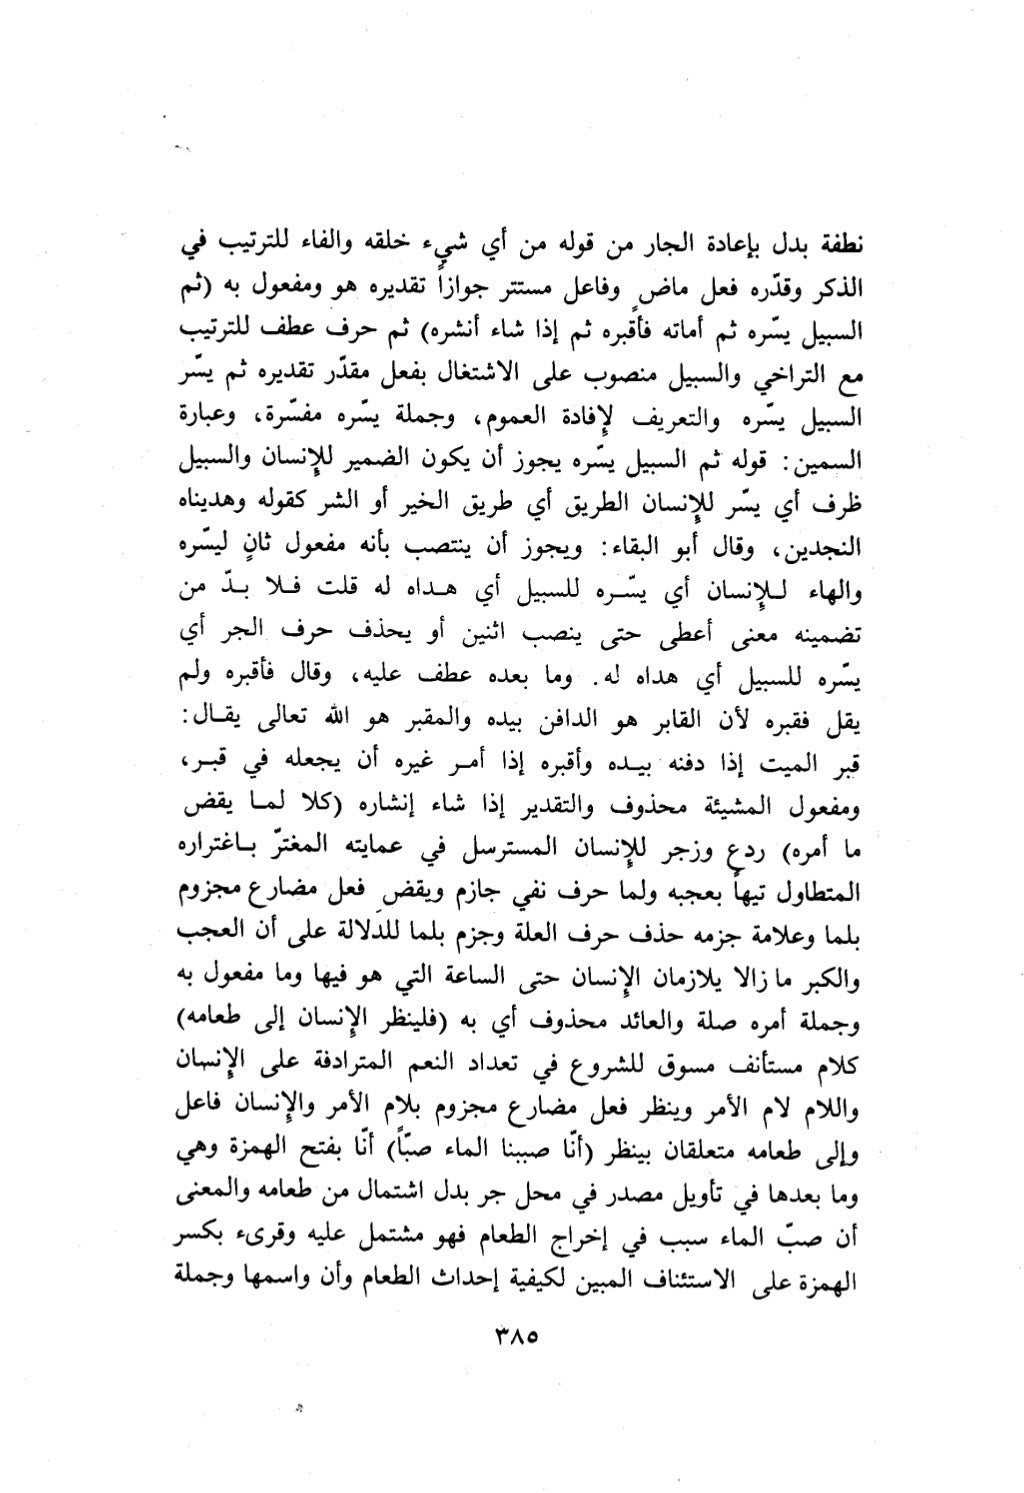 نطفة بدل بإعادة الجار من قوله من أي شيء خلقه والفاء للترتيب في
الذكر وقدّره فعل ماضٍ وفاعل مستتر جوازاً تقديره هو ومفعول به (ثم
السبيل يسّره ثم أماته فأقبره ثم إذا شاء أنشره) ثم حرف عطف للترتيب
مع التراخي والسبيل منصوب على الاشتغال بفعل مقدّر تقديره ثم يسّر
السبيل يسّره والتعريف لإفادة العموم، وجملة يسّره مفسّرة، وعبارة
السمين: قوله ثم السبيل يسّره يجوز أن يكون الضمير للإنسان والسبيل
ظرف أي يسّر للإنسان الطريق أي طريق الخير أو الشر كقوله وهديناه
النجدين، وقال أبو البقاء: ويجوز أن ينتصب بأنه مفعول ثانٍ ليسّره
والهاء للإنسان أي يسّره للسبيل أي هداه له قلت فلا بدّ من
تضمينه معنى أعطى حتى ينصب اثنين أو يحذف حرف الجر أي
يسّره للسبيل أي هداه له. وما بعده عطف عليه، وقال فأقبره ولم
يقل فقبره لأن القابر هو الدافن بيده والمقبر هو الله تعالى يقال:
قبر الميت إذا دفنه بيده وأقبره إذا أمر غيره أن يجعله في قبر،
ومفعول المشيئة محذوف والتقدير إذا شاء إنشاره (كلا لما يقض
ما أمره) ردع وزجر للإنسان المسترسل في عمايته المغترّ باغتراره
المتطاول تيهاً بعجبه ولما حرف نفي جازم ويقضِ فعل مضارع مجزوم
بلما وعلامة جزمه حذف حرف العلة وجزم بلما للدّلالة على أن العجب
والكبر ما زالا يلازمان الإنسان حتى الساعة التي هو فيها وما مفعول به
وجملة أمره صلة والعائد محذوف أي به (فلينظر الإنسان إلى طعامه)
كلام مستأنف مسوق للشروع في تعداد النعم المترادفة على الإنسان
واللام لام الأمر وينظر فعل مضارع مجزوم بلام الأمر والإنسان فاعل
وإلى طعامه متعلقان بينظر (أنّا صببنا الماء صبّاً) أنّا بفتح الهمزة وهي
وما بعدها في تأويل مصدر في محل جر بدل اشتمال من طعامه والمعنى
أن صبّ الماء سبب في إخراج الطعام فهو مشتمل عليه وقرىء بكسر
الهمزة على الاستئناف المبين لكيفية إحداث الطعام وأن واسمها وجملة
٣٨٥